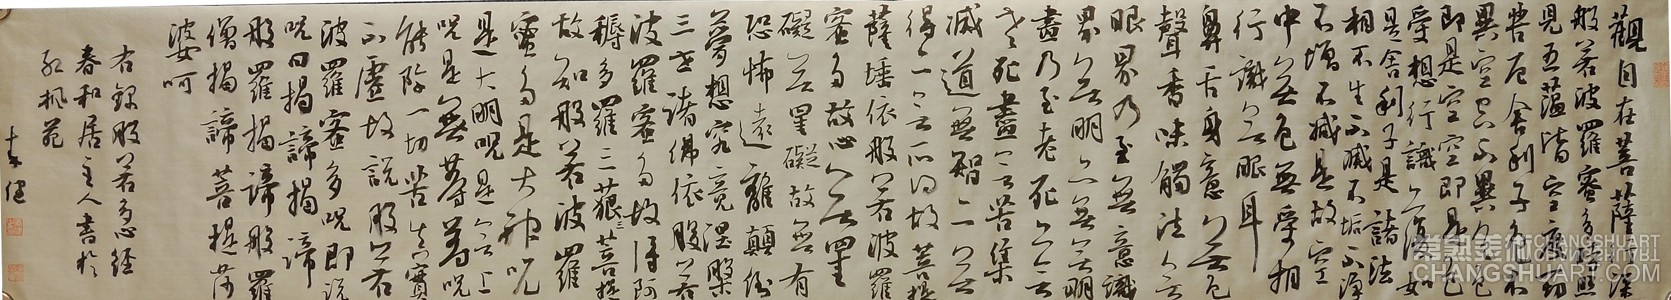 觀自在菩薩行深
般若波羅蜜多時照
見五蘊皆空度切
苦厄舍利子色不
異空空不異色色
即是空空即是色
受想行識亦復如
是舍利子是諸法
相不生不滅不垢不淨
不增不減是故空
中無色無受想
行識無眼耳
鼻舌身意無色
聲香味觸法無
眼界乃至無意識
界無無明亦無無明
盡乃至老死亦無
老死盡無苦集
滅道無智亦無
得以無所得故菩提
薩埵依般若波羅
蜜多故心無罣
礙無罣礙故無有
恐怖遠離顛倒
夢想究竟涅槃
三世諸佛依般若
波羅蜜多故得阿
耨多羅三藐三菩提
故知般若波羅
蜜多是大神咒
是大明咒是無上
咒是無等等咒
能除一切苦真實
不虛故說般若
波羅蜜多咒即說
咒曰揭諦揭諦
般羅揭諦般羅
僧揭諦菩提莎
婆呵
右錄般若心經
春和居主人書於
紅楓苑
美熟美術
CHANGSHUART
CHANGSHUART.COM